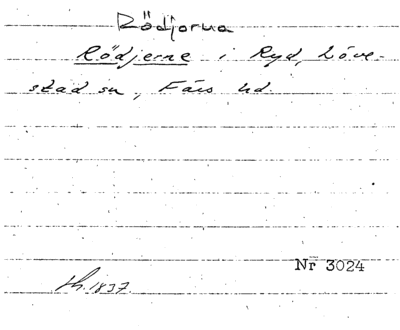 Rödjorna
Rödjerne i Ryd, Löve-
stad sn, Färs hd.
Nr 3024
th. 1837.